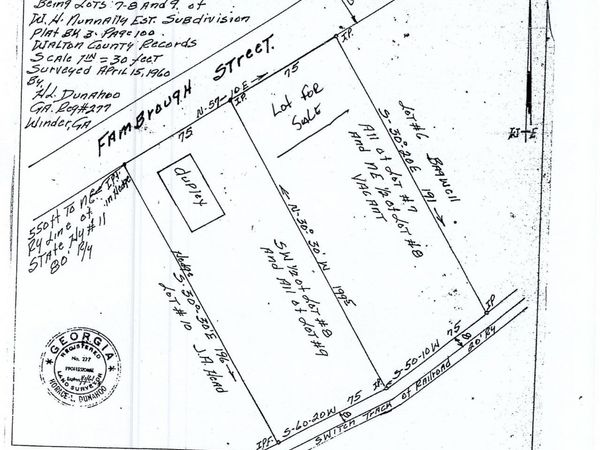 Being Lots 7-8 And 9. of
W.H. Nunnally Est. Subdivision
Plat Bk 3. Page 100.
Walton County Records
Scale 1in = 30 feet
Surveyed April 15, 1960
By,
H.L. Dunahoo
GA. Reg #277
Winder, GA
Fambrough Street.
75
N-57-10E
IP.
75
IP.
Lot for
Sale
Lot #6 Braswell
S-30°20E 191
All of Lot #7
And NE 1/2 of Lot #8
VACANT
N-30° 30'W 199.5
SW 1/2 of Lot #8
And All of Lot #9
duplex
Hedge S-30°30'E 196
Lot #10 J.A. Head
550 ft To NE
R/y Line of
State Hy #11
80' R/y
IP.
in Hedge
IP
S-50-10W 75
IP.
S-60-20W 75
IPF
8
8
Switch Track of Railroad 20' R/y
GEORGIA
REGISTERED
No. 277
PROFESSIONAL
LAND SURVEYOR
HORACE L. DUNAHOO